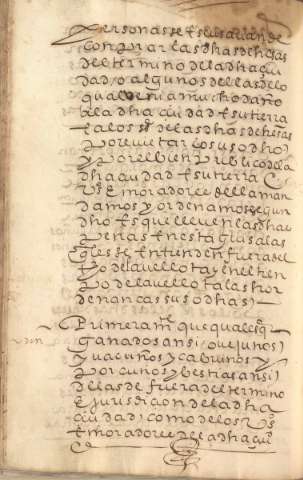 personas de fuera se avian de
conprar las dhas dehesas
del termino de la dha çiu
dad o algunos dellas de lo
qual venia mucho daño
a la dha çiudad e su tierra
e a los sres de las dhas dehesas
por evitar lo susodho
y por el bien publico de la
dha çiudad e su tierra e
vos e moradores della man
damos y ordenamos segun
dho es que lleven las dhas
penas en esta guisa las
qles se entienden fuera del
tpo de la vellota y en el tien
po de la vellota las hor
denanças susodhas
Primeramte que qualesqr
ganados ansi ovejunos
y vacunos y cabrunos y
porcunos y bestias ansi
de las de fuera del termino
e jurisdiçion de la dha
çiudad como de los vos
e moradores de la dha çiu